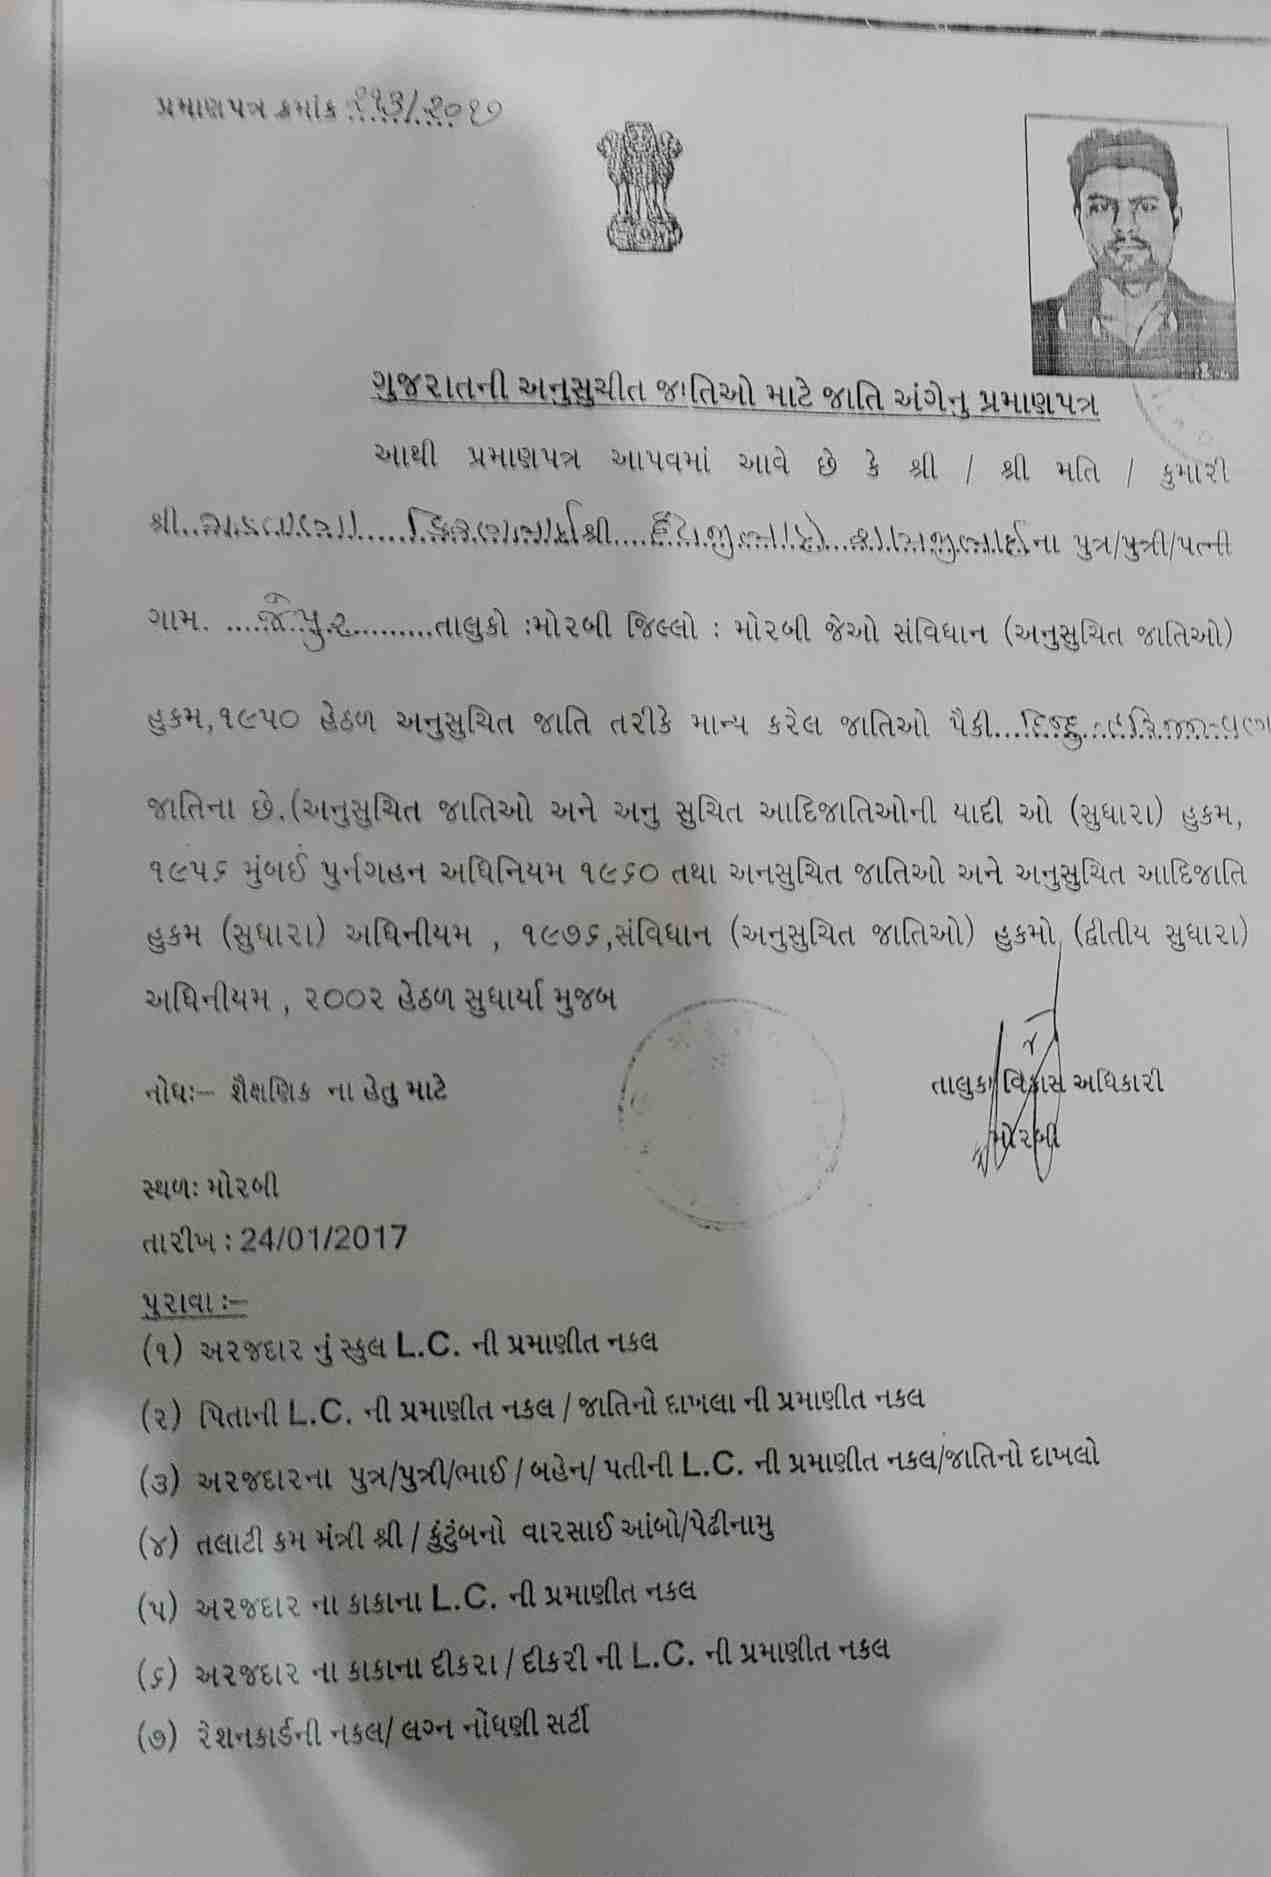 પ્રમાણપત્ર ક્રમાંક ૨૧૩/૨૦૧૭
ગુજરાતની અનુસુચીત જાતિઓ માટે જાતિ અંગેનુ પ્રમાણપત્ર
આથી પ્રમાણપત્ર આપવમાં આવે છે કે શ્રી / શ્રી મતિ / કુમારી
શ્રી..મકવાણા.....કિરણભાઈ શ્રી.... ના પુત્ર/પુત્રી/પત્ની
ગામ. ....જેપુર.........તાલુકો :મોરબી જિલ્લો : મોરબી જેઓ સંવિધાન (અનુસુચિત જાતિઓ)
હુકમ,૧૯૫૦ હેઠળ અનુસુચિત જાતિ તરીકે માન્ય કરેલ જાતિઓ પૈકી...હિન્દુ..હરિજન-વણ
જાતિના છે.(અનુસુચિત જાતિઓ અને અનુ સુચિત આદિજાતિઓની યાદી ઓ (સુધારા) હુકમ,
૧૯૫૬ મુંબઈ પુર્નગહન અધિનિયમ ૧૯૬૦ તથા અનસુચિત જાતિઓ અને અનુસુચિત આદિજાતિ
હુકમ (સુધારા) અધિનીયમ , ૧૯૭૬,સંવિધાન (અનુસુચિત જાતિઓ) હુકમો (દ્વીતીય સુધારા)
અધિનીયમ , ૨૦૦૨ હેઠળ સુધાર્યા મુજબ
નોધઃ– શૈક્ષણિક ના હેતુ માટે
તાલુકા વિકાસ અધિકારી
મોરબી
સ્થળઃ મોરબી
તારીખ : 24/01/2017
પુરાવા :–
(૧) અરજદાર નું સ્કુલ L.C. ની પ્રમાણીત નકલ
(૨) પિતાની L.C. ની પ્રમાણીત નકલ / જાતિનો દાખલા ની પ્રમાણીત નકલ
(૩) અરજદારના પુત્ર/પુત્રી/ભાઈ / બહેન/ પતીની L.C. ની પ્રમાણીત નકલ/જાતિનો દાખલો
(૪) તલાટી કમ મંત્રી શ્રી / કુંટુંબનો વારસાઈ આંબો/પેઢીનામુ
(૫) અરજદાર ના કાકાના L.C. ની પ્રમાણીત નકલ
(૬) અરજદાર ના કાકાના દીકરા / દીકરી ની L.C. ની પ્રમાણીત નકલ
(૭) રેશનકાર્ડની નકલ/ લગ્ન નોંધણી સર્ટી